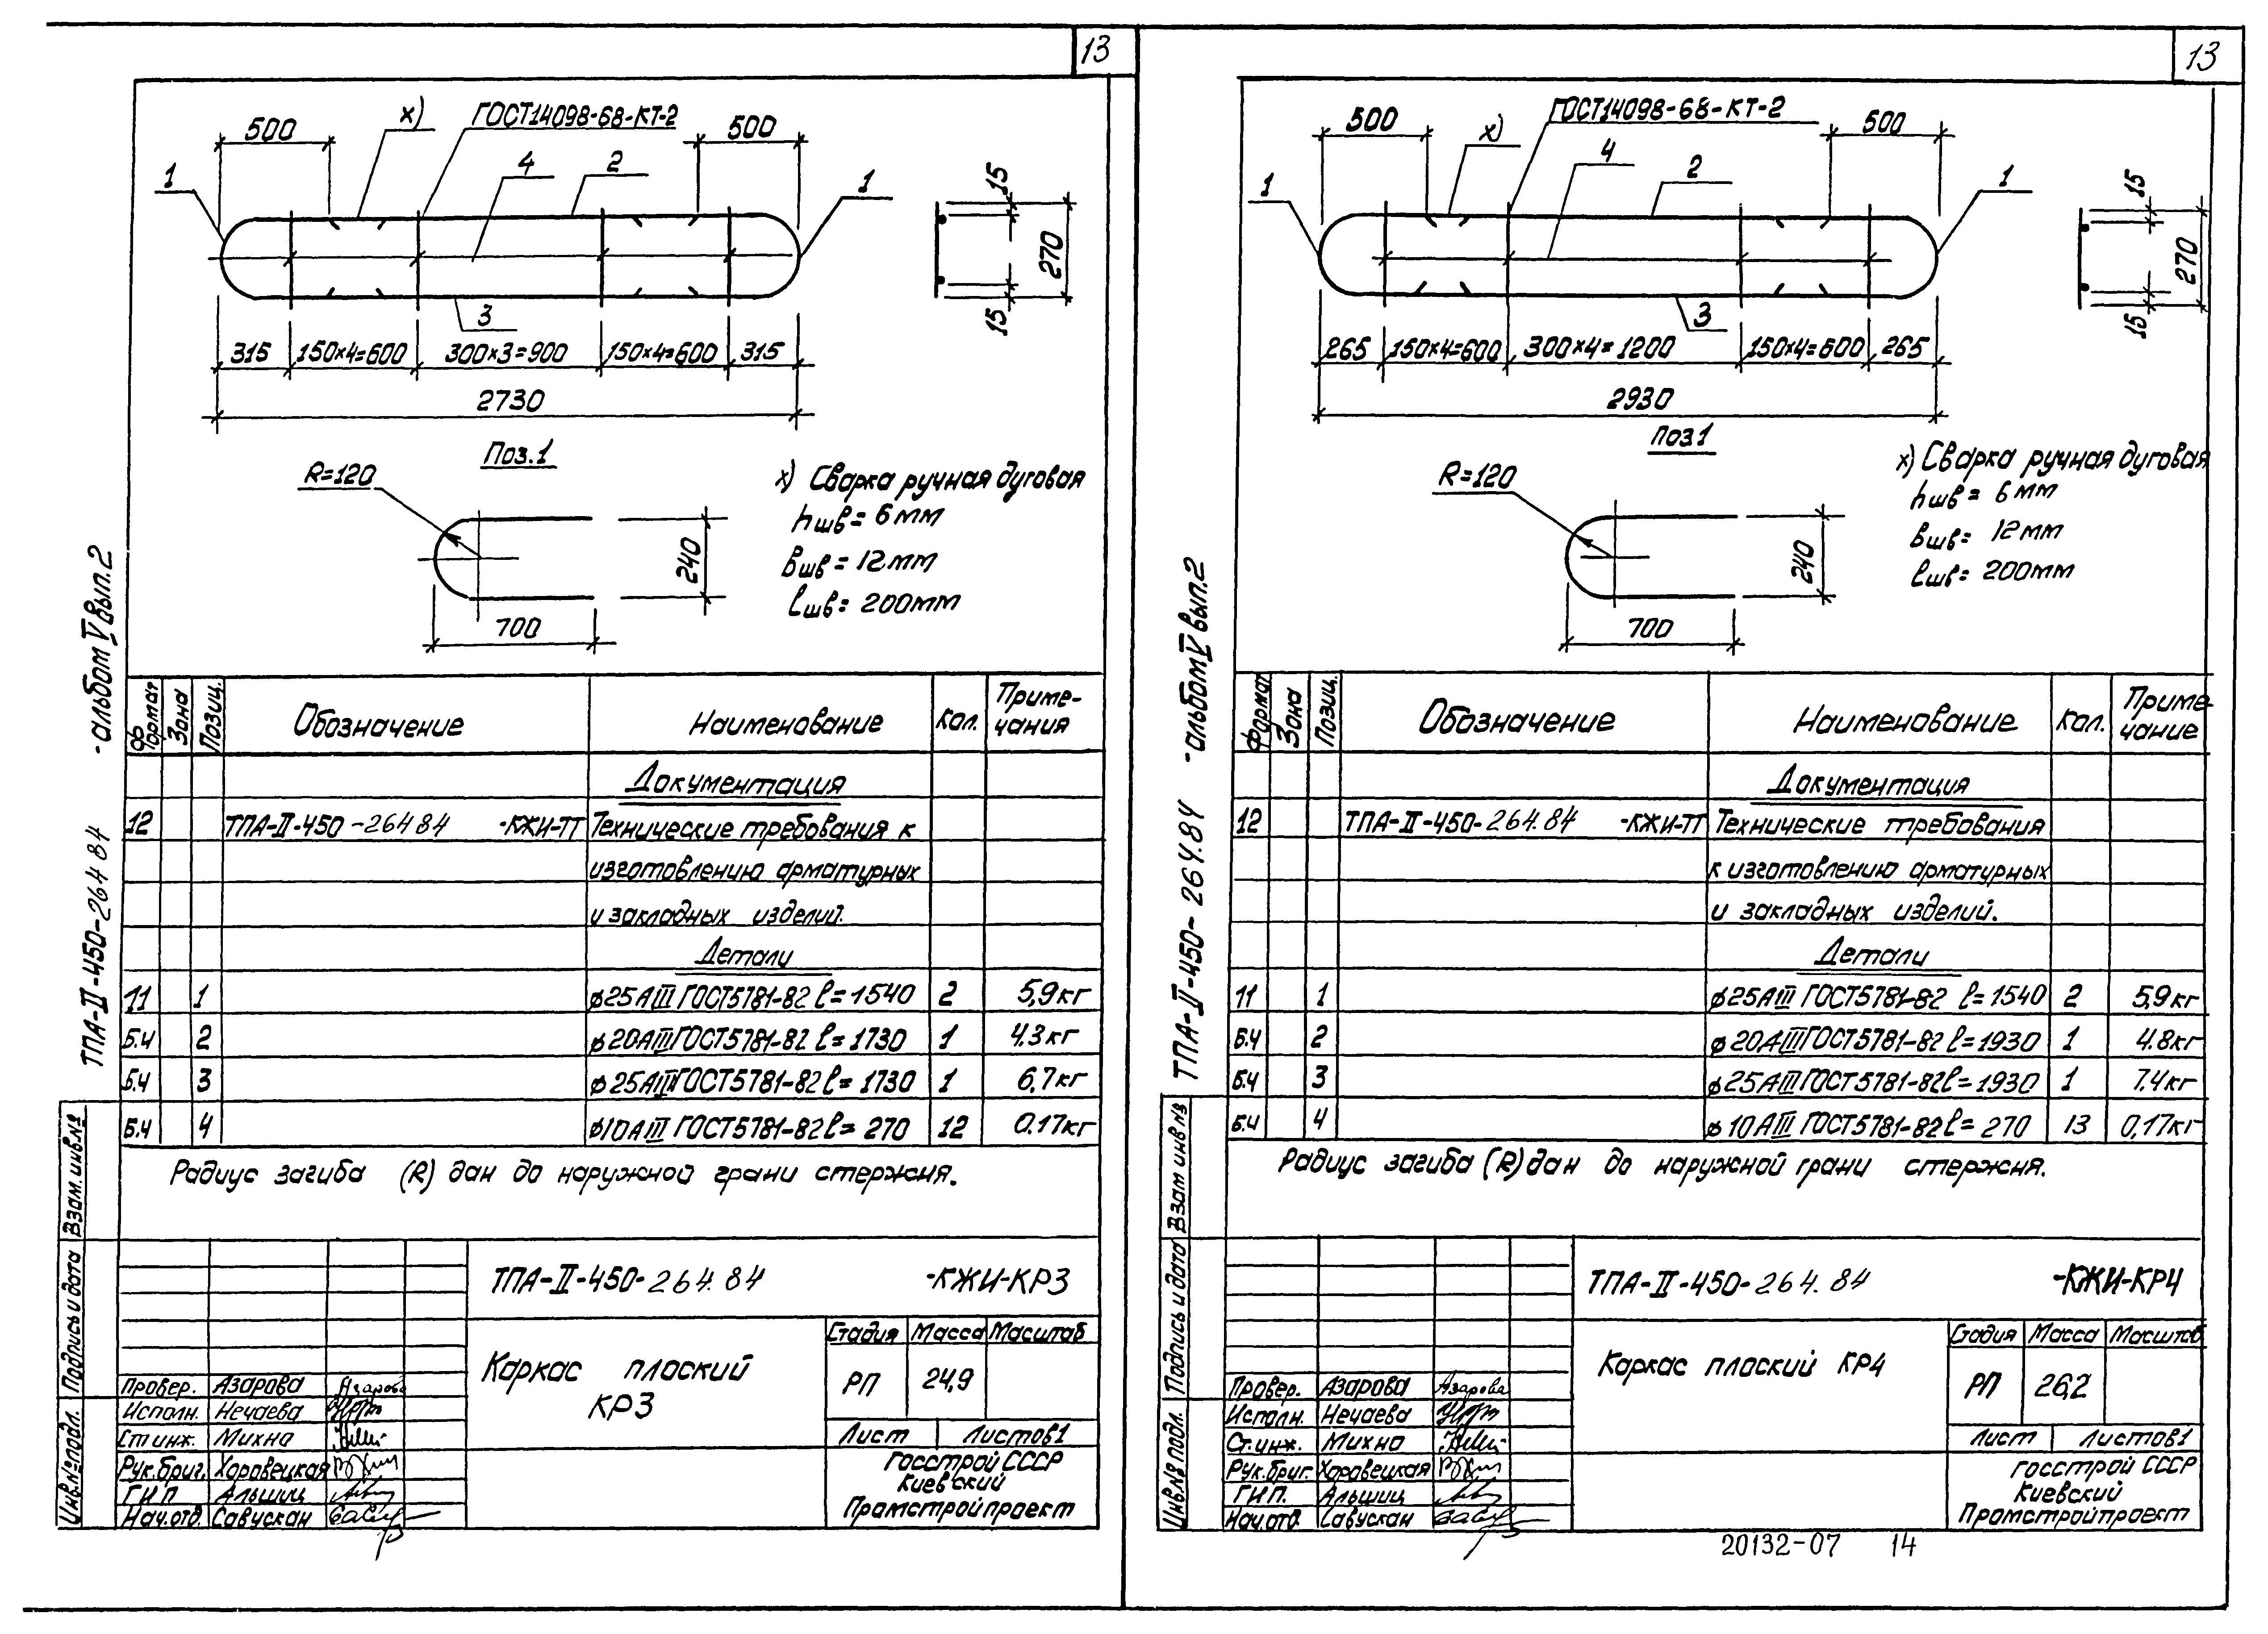 13
500
х)
ГОСТ14098-68-КТ-2
500
1
4
2
1
15
270
15
3
315
150×4=600
300×3=900
150×4=600
315
2730
Поз.1
R=120
240
700
х) Сварка ручная дуговая
hшв = 6мм
Вшв = 12мм
lшв = 200мм
Формат
Зона
Позиц.
Обозначение
Наименование
Кол.
Приме-
чания
Документация
12 ТПА-II-450-264 84 -КЖИ-ТТ Технические требования к
изготовлению арматурных
и закладных изделий.
Детали
11 1 ⌀25АIII ГОСТ5781-82 l=1540 2 5,9кг
Б.Ч 2 ⌀20АIII ГОСТ5781-82 l=1730 1 4.3кг
Б.Ч 3 ⌀25АIII ГОСТ5781-82 l=1730 1 6,7кг
Б.Ч 4 ⌀10АIII ГОСТ5781-82 l=270 12 0.17кг
Радиус загиба (R) дан до наружной грани стержня.
ТПА-II-450-264 84 -альбом V вып.2
Взам. инв №
Подпись и дата
Инв.№подл.
ТПА-II-450-264.84 -КЖИ-КР3
Каркас плоский
КР3
Стадия Масса Масштаб
РП 24,9
Лист Листов1
Госстрой СССР
Киевский
Промстройпроект
Провер. Азарова
Исполн. Нечаева
Ст инж. Михно
Рук.бриг. Хоровецкая
ГИП Альшиц
Нач.отд. Савускан
13
500
х)
ГОСТ14098-68-КТ-2
500
1
4
2
1
15
270
15
3
265
150×4=600
300×4=1200
150×4=600
265
2930
Поз.1
R=120
240
700
х) Сварка ручная дуговая
hшв = 6мм
Вшв = 12мм
lшв = 200мм
Формат
Зона
Позиц.
Обозначение
Наименование
Кол.
Приме-
чание
Документация
12 ТПА-II-450-264.84 -КЖИ-ТТ Технические требования
к изготовлению арматурных
и закладных изделий.
Детали
11 1 ⌀25АIII ГОСТ5781-82 l=1540 2 5,9кг
Б.Ч 2 ⌀20АIII ГОСТ5781-82 l=1930 1 4.8кг
Б.Ч 3 ⌀25АIII ГОСТ5781-82 l=1930 1 7.4кг
Б.Ч 4 ⌀10АIII ГОСТ5781-82 l=270 13 0,17кг
Радиус загиба (R) дан до наружной грани стержня.
ТПА-II-450-264.84 -альбом V вып.2
Взам инв №
Подпись и дата
Инв.№ подл.
ТПА-II-450-264.84 -КЖИ-КР4
Каркас плоский КР4
Стадия Масса Масштаб
РП 26,2
Лист Листов1
Госстрой СССР
Киевский
Промстройпроект
Провер. Азарова
Исполн. Нечаева
Ст.инж. Михно
Рук.бриг. Хоровецкая
ГИП. Альшиц
Нач.отд. Савускан
20132-07 14